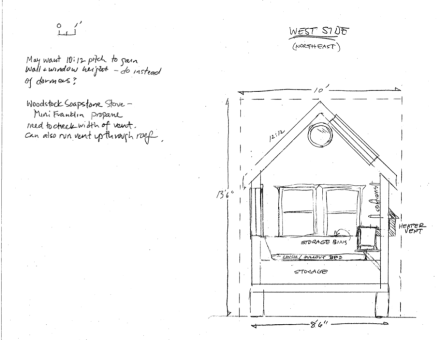 0 1'
May want 10:12 pitch to gain
wall & window height - do instead
of dormers?
Woodstock Soapstone Stove -
Mini Franklin propane
need to check width of vent.
Can also run vent up through roof.
WEST SIDE
(NORTHEAST)
10'
12:12
13'6"
HEATER
VENT
STORAGE BINS
BED
STORAGE
8'6"